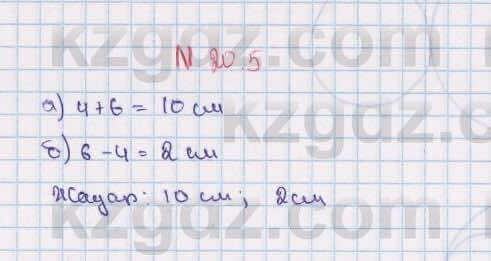 kzgdz.com
N 20.5
а) 4+6 = 10 см
kzgdz.com
б) 6-4 = 2 см
Жауап: 10 см; 2см
kzgdz.com